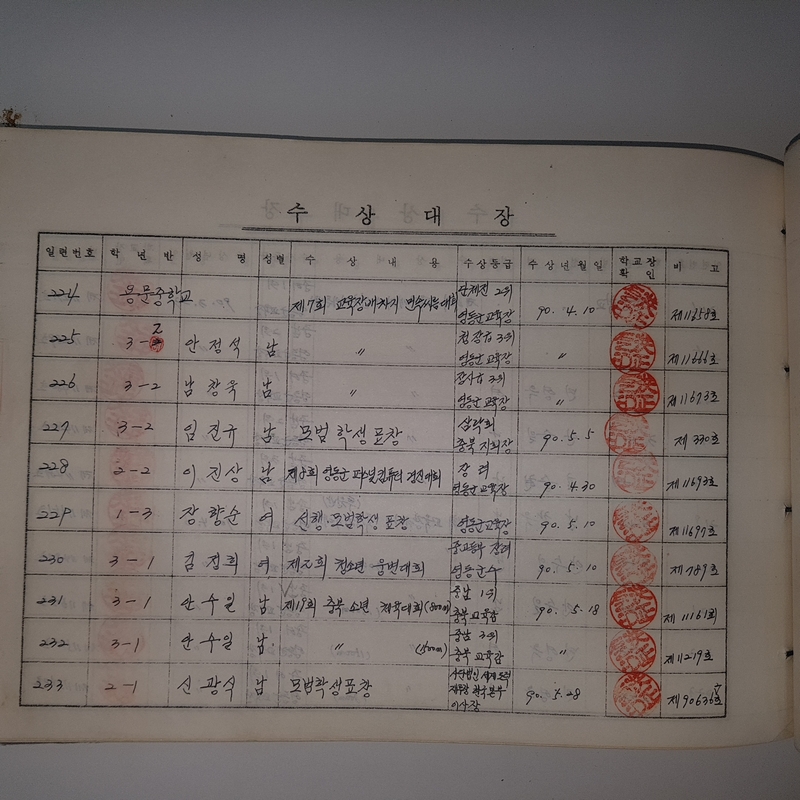 수 상 대 장
일련번호 학 년 반 성 명 성별 수 상 내 용 수상등급 수 상 년 월 일 학교장 확 인 비 고
224 용문중학교 제7회 교육장배차지 대회 단체전 2위 영동군교육장 90. 4. 10 제11658호
225 3-2 안정석 남 〃 3위 영동군교육장 〃 제11666호
226 3-2 남창욱 남 〃 3위 영동군교육장 〃 제11673호
227 3-2 임진규 남 모범학생표창 충북지회장 90. 5. 5 제330호
228 2-2 이진상 남 영동군 퍼스널컴퓨터 경진대회 장려 영동군교육장 90. 4. 30 제11693호
229 1-3 장향순 여 선행·모범학생표창 영동군교육장 90. 5. 10 제11697호
230 3-1 김정희 여 청소년 웅변대회 중고등부 장려 영동군수 90. 5. 10 제789호
231 3-1 안수일 남 제19회 충북소년체육대회(800m) 중남 1위 충북교육감 90. 5. 18 제11161호
232 3-1 안수일 남 〃 중남 3위 충북교육감 〃 제11219호
233 2-1 신광식 남 모범학생표창 이사장 90. 5. 28 제90636호